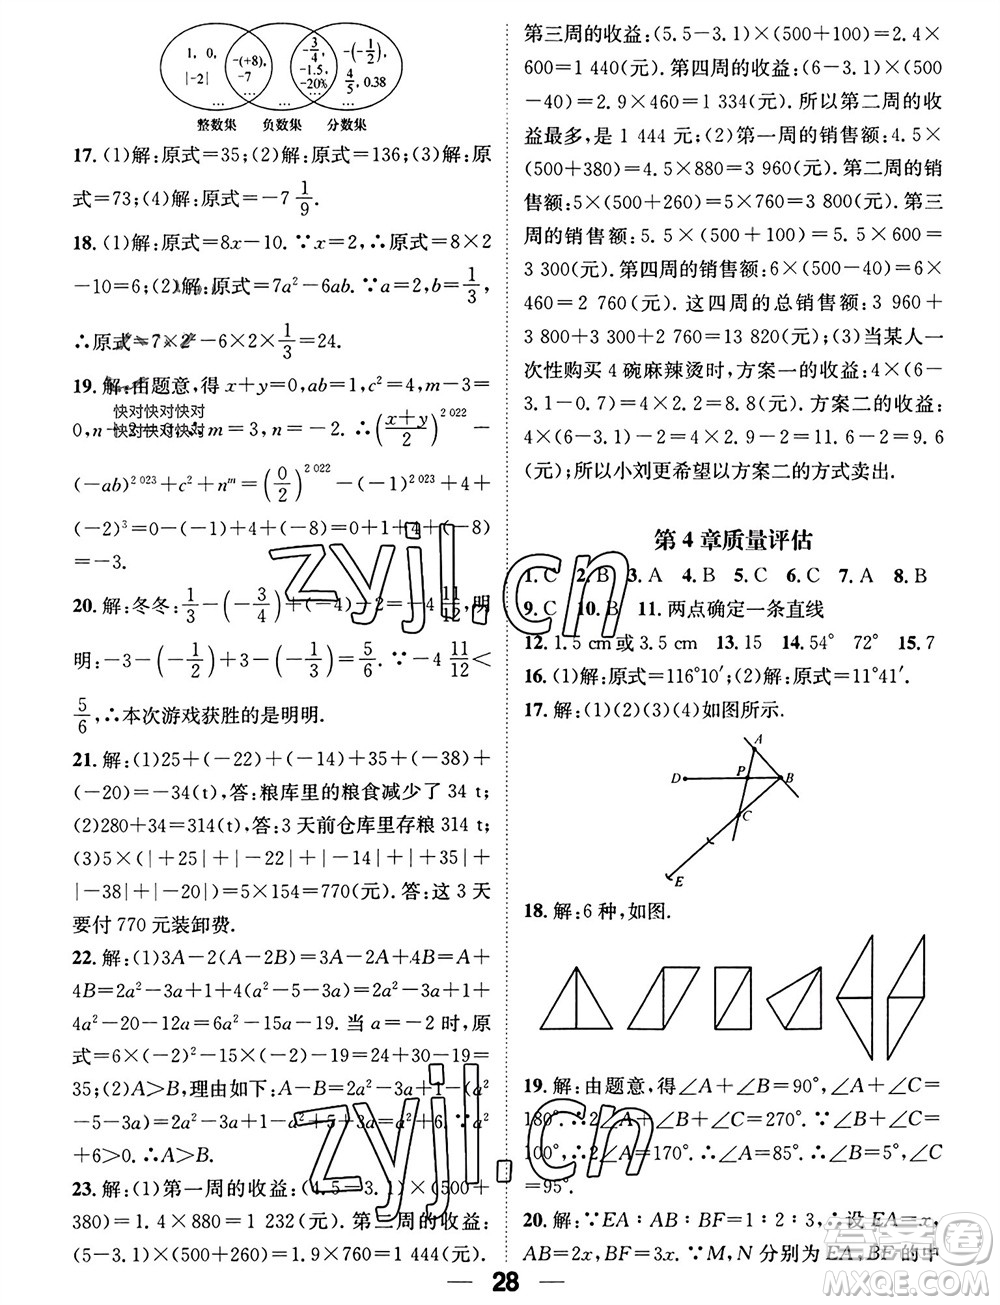 1, 0,
|-2|
…
-(+8),
-7
…
-3/4
-1.5,
-20%
…
-(-1/2)
4/5, 0.38
…
整数集 负数集 分数集
17. (1)解:原式=35;(2)解:原式=136;(3)解:原
式=73;(4)解:原式=-7 1/9.
18. (1)解:原式=8x-10. ∵x=2,∴原式=8×2
-10=6;(2)解:原式=7a²-6ab. ∵a=2,b=1/3,
∴原式=7×2²-6×2×1/3=24.
19. 解:由题意,得 x+y=0,ab=1,c²=4,m-3=
快对快对快对
快对快对快对
m=3,n=-2.∴((x+y)/2)^2 022-
(-ab)^2 023+c²+n^m=(0/2)^2 022-(-1)^2 023+4+
(-2)³=0-(-1)+4+(-8)=0+1+4-8=
-3.
20. 解:冬冬:1/3-(-3/4)+(-4)-2=-4 11/12,明
明:-3-(-1/2)+3-(-1/3)=5/6. ∵-4 11/12<
5/6,∴本次游戏获胜的是明明.
21. 解:(1)25+(-22)+(-14)+35+(-38)+
(-20)=-34(t),答:粮库里的粮食减少了 34 t;
(2)280+34=314(t),答:3 天前仓库里存粮 314 t;
(3)5×(|+25|+|-22|+|-14|+|+35|+
|-38|+|-20|)=5×154=770(元).答:这 3 天
要付 770 元装卸费.
22. 解:(1)3A-2(A-2B)=3A-2A+4B=A+
4B=2a²-3a+1+4(a²-5-3a)=2a²-3a+1+
4a²-20-12a=6a²-15a-19. 当 a=-2 时,原
式=6×(-2)²-15×(-2)-19=24+30-19=
35;(2)A>B,理由如下:A-B=2a²-3a+1-(a²
-5-3a)=2a²-3a+1-a²+5+3a=a²+6.∵a²
+6>0,∴A>B.
23. 解:(1)第一周的收益:(4.5-3.1)×(500+
380)=1.4×880=1 232(元).第二周的收益:
(5-3.1)×(500+260)=1.9×760=1 444(元).
第三周的收益:(5.5-3.1)×(500+100)=2.4×
600=1 440(元).第四周的收益:(6-3.1)×(500
-40)=2.9×460=1 334(元).所以第二周的收
益最多,是 1 444 元;(2)第一周的销售额:4.5×
(500+380)=4.5×880=3 960(元).第二周的销
售额:5×(500+260)=5×760=3 800(元).第三
周的销售额:5.5×(500+100)=5.5×600=
3 300(元).第四周的销售额:6×(500-40)=6×
460=2 760(元).这四周的总销售额:3 960+
3 800+3 300+2 760=13 820(元);(3)当某人一
次性购买 4 碗麻辣烫时,方案一的收益:4×(6-
3.1)×4.2.8(元).方案二的收益:
4×(6-3.1)-2=4×2.9-2=11.6-2=9.6
(元);所以小刘更希望以方案二的方式卖出.
第 4 章质量评估
1. C 2. B 3. A 4. B 5. C 6. C 7. A 8. B
9. C 10. B 11. 两点确定一条直线
12. 1.5 cm或3.5 cm 13. 15 14. 54° 72° 15. 7
16. (1)解:原式=116°10′;(2)解:原式=11°41′.
17. 解:(1)(2)(3)(4)如图所示.
A
D P B
C
E
18. 解:6 种,如图.
19. 解:由题意,得∠A+∠B=90°,∠A+∠C=
180°.∴2∠A+∠B+∠C=270°.∵∠B+∠C=
100°,∴2∠A=170°.∴∠A=85°.∴∠B=5°,∠C
=95°.
20. 解:∵EA∶AB∶BF=1∶2∶3,∴设 EA=x,
AB=2x,BF=3x.∵M,N 分别为 EA,BF 的中
28
zyjl.cn
zyjl.cn
答案圈
MXQE.COM